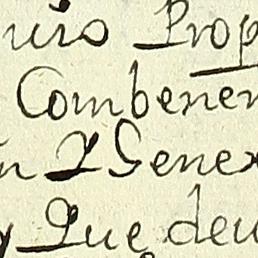 uro Prop
Combenen
n Y Gene
y Que deu